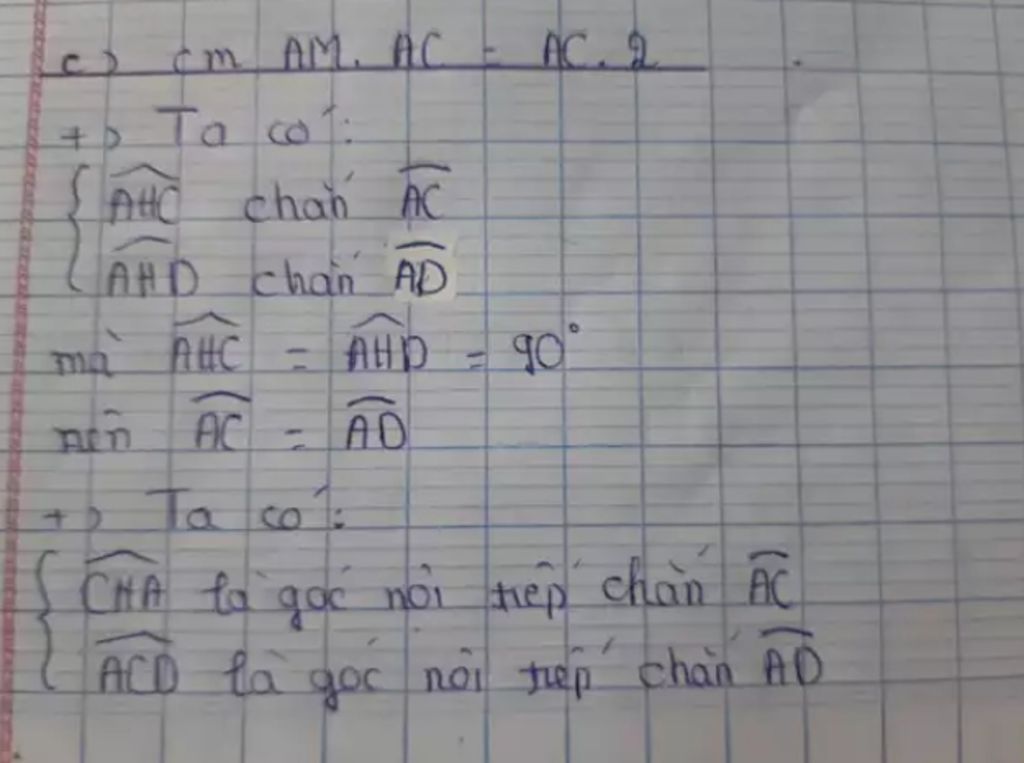 c) cm AM. AC = AC. 2
+) Ta có:
{ AHC chắn AC
AHD chắn AD
mà AHC = AHD = 90°
nên AC = AD
+) Ta có:
{ CHA là góc nội tiếp chắn AC
ACD là góc nội tiếp chắn AD